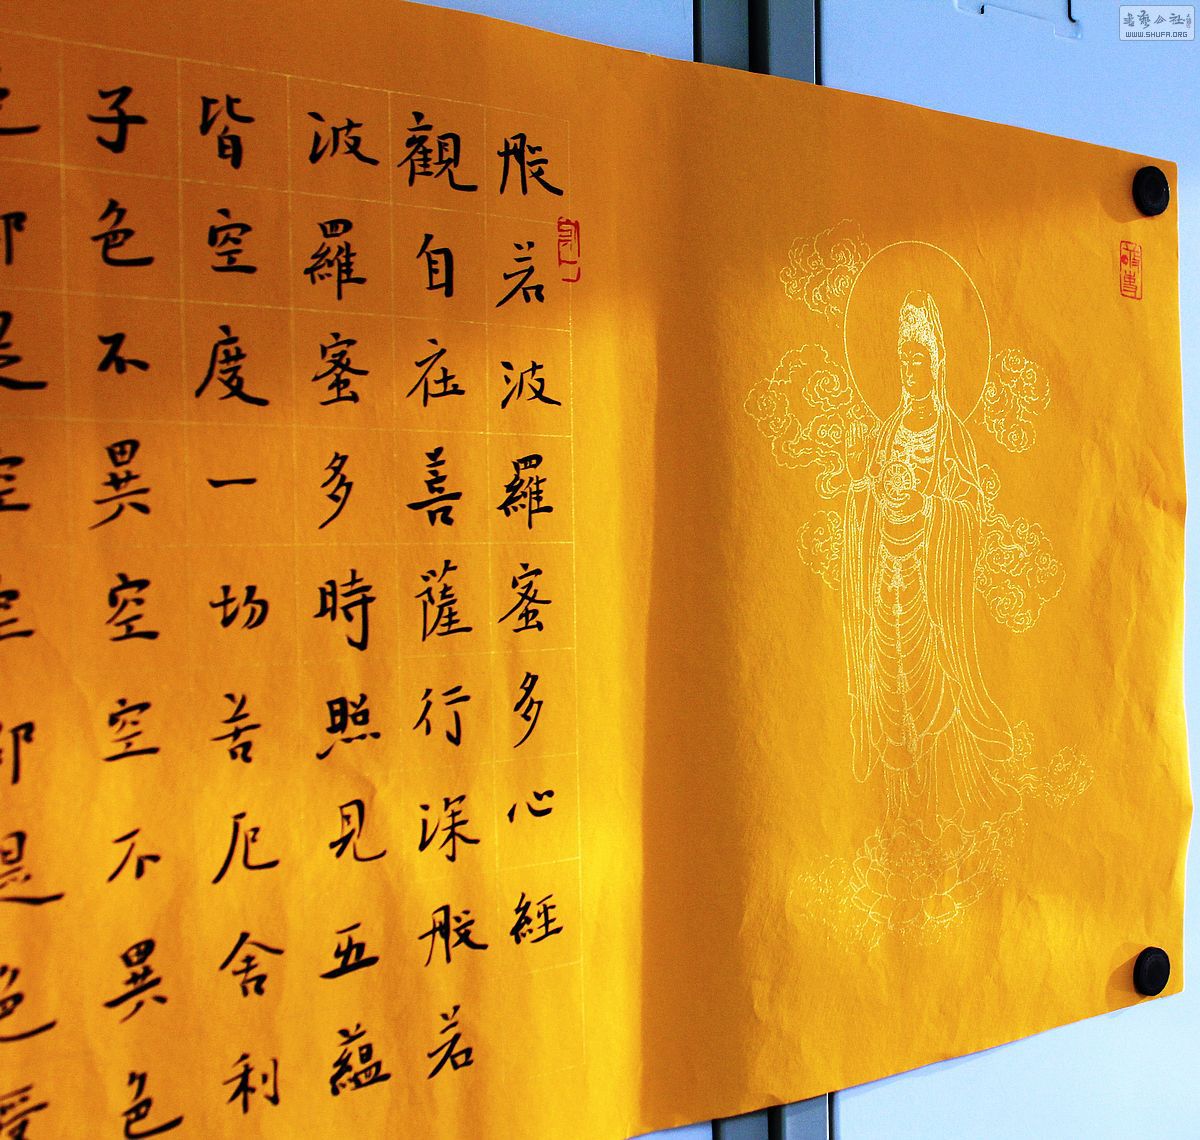 般若波羅蜜多心經
觀自在菩薩行深般若
波羅蜜多時照見五蘊
皆空度一切苦厄舍利
子色不異空空不異色
是空
即是色受
WWW.SHUFA.ORG